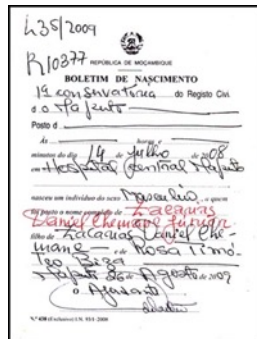 L35/2009
R10377
REPÚBLICA DE MOÇAMBIQUE
BOLETIM DE NASCIMENTO
1ª Conservatória do Registo Civi.
d o Maputo
Posto d
Às horas
minutos do dia 14 de Julho de 08
em Hospital Central Maputo
nasceu um indivíduo do sexo Masculino, a quem
foi posto o nome completo de Zacarias
Daniel Chemane Júnior
filho de Zacarias Daniel Che-
mane e de Rosa Timó-
teo Biza
Maputo 26 de Agosto de 2009
o Ajudante
N.º 430 (Exclusivo) I.N. 911-2008